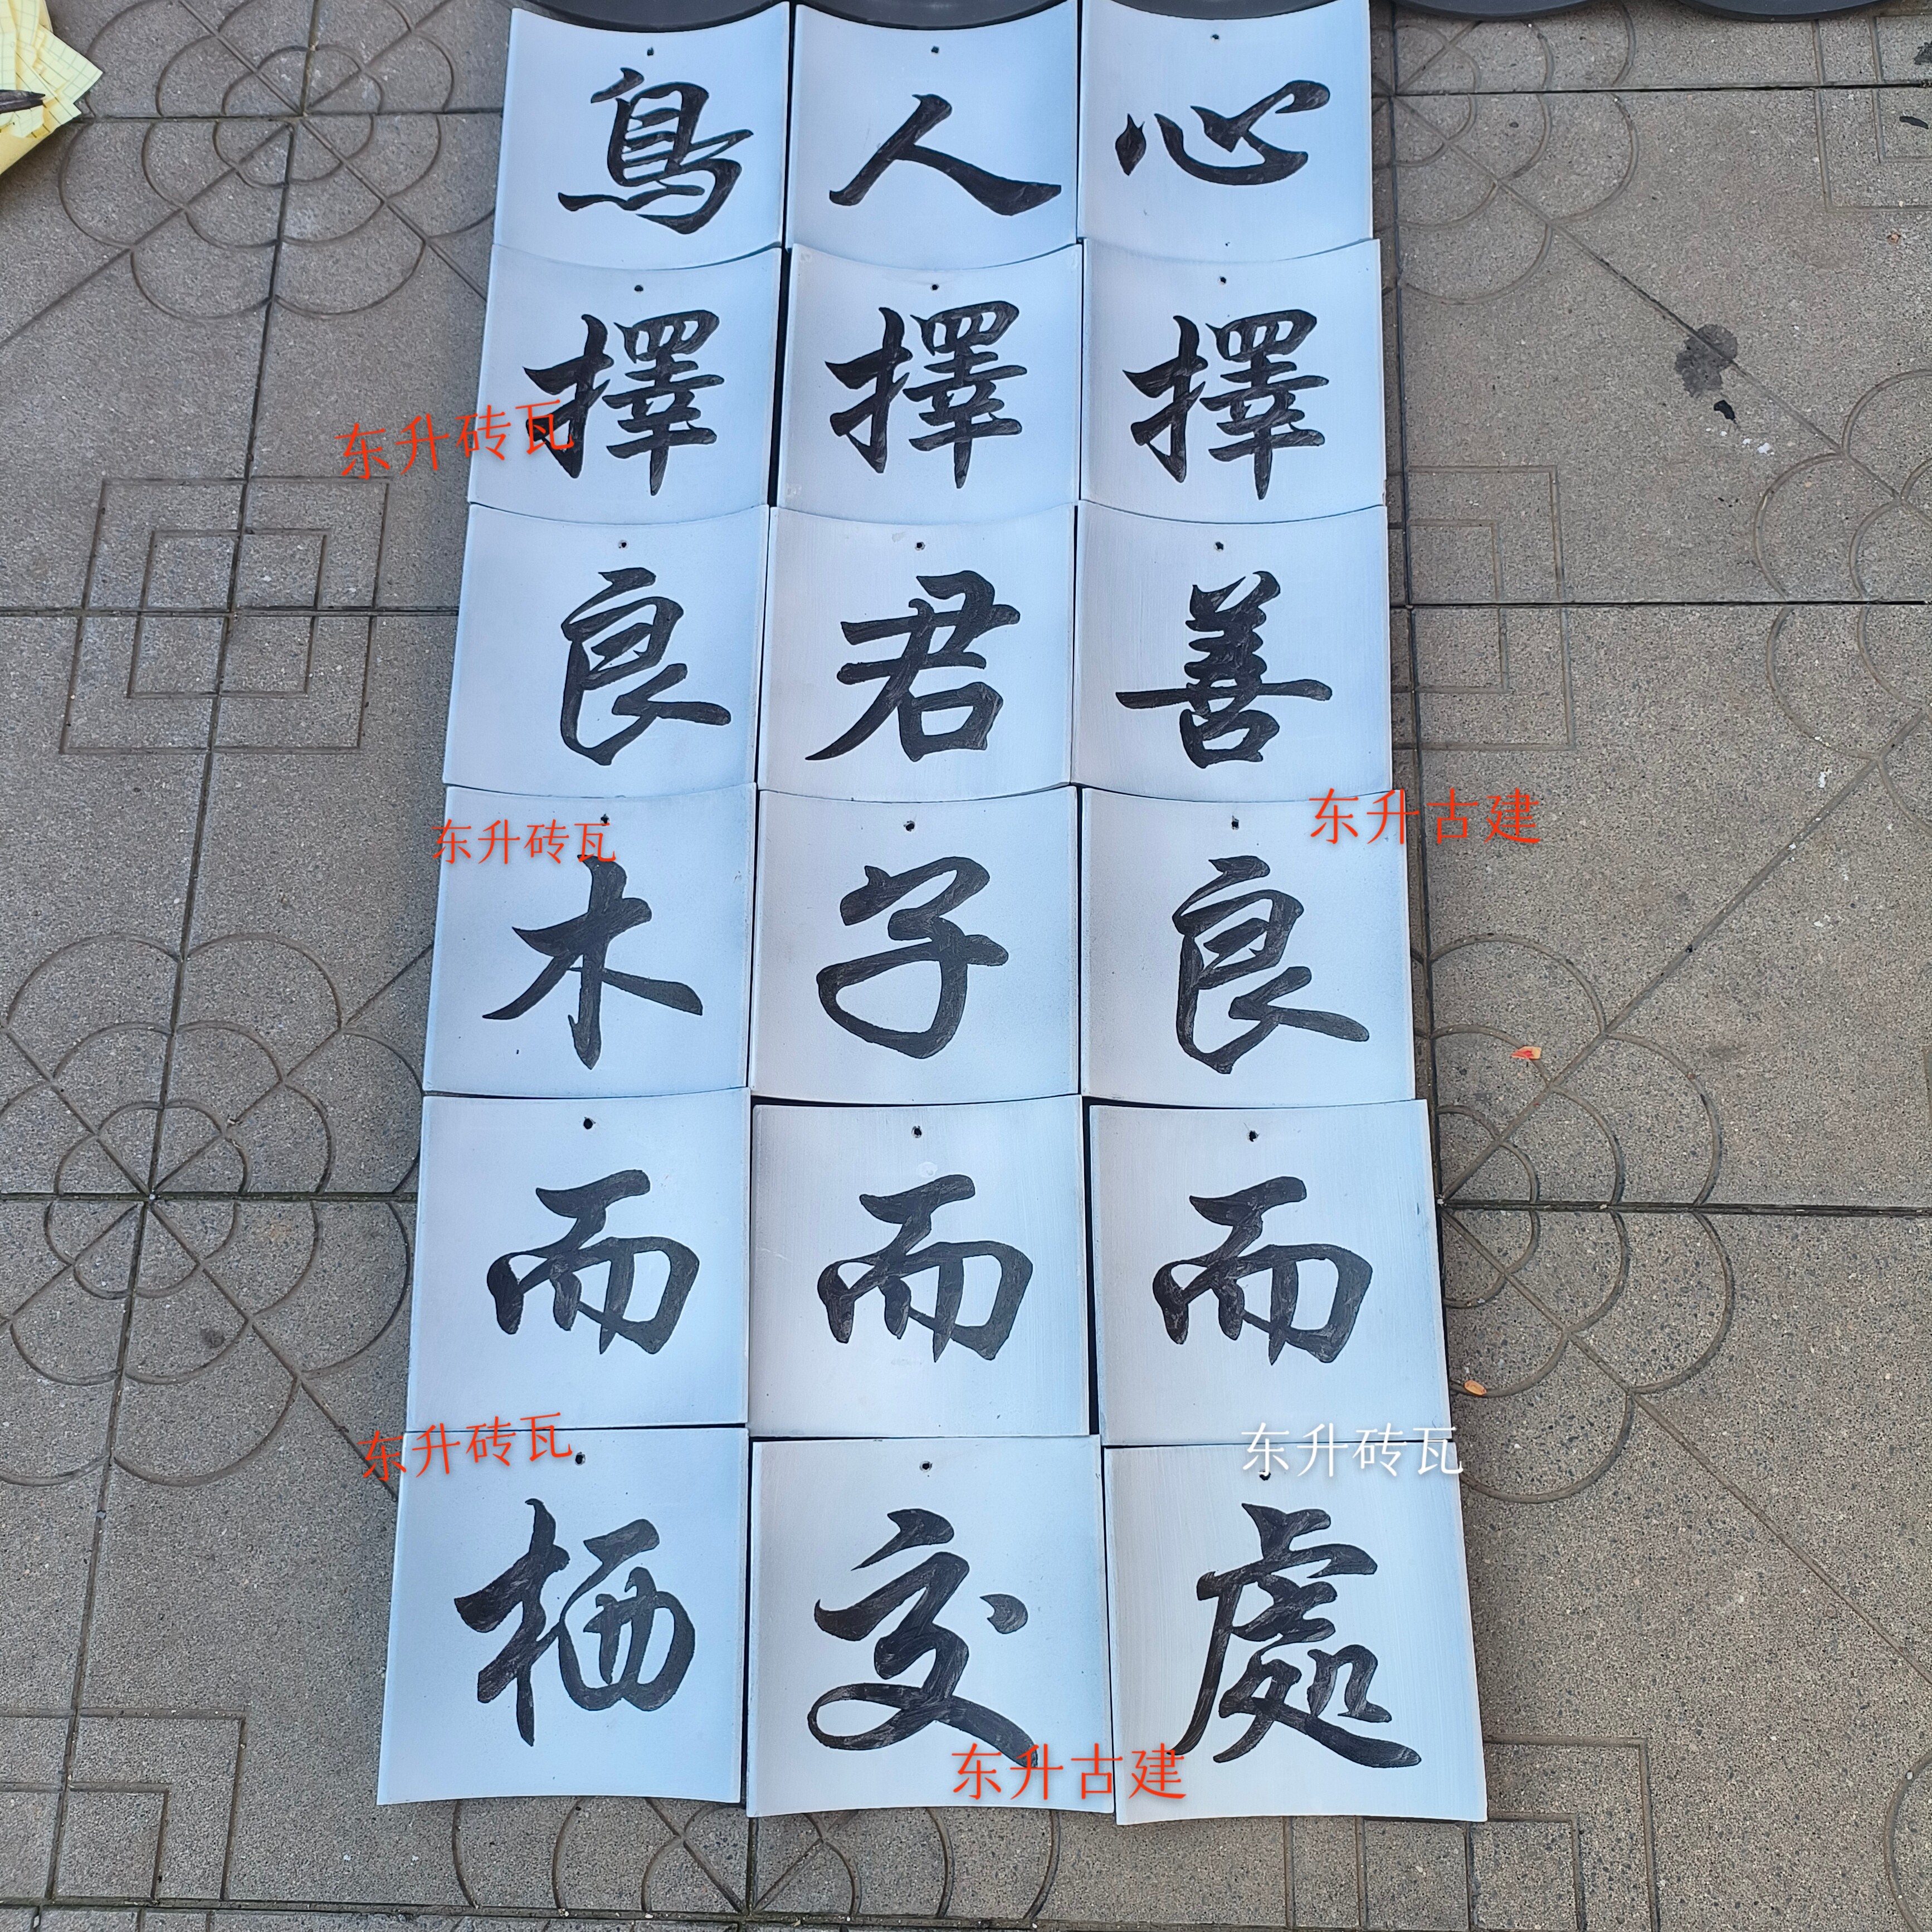 鳥擇良木而栖
人擇君子而交
心擇善良而處
东升砖瓦
东升砖瓦
东升古建
东升砖瓦
东升砖瓦
东升古建